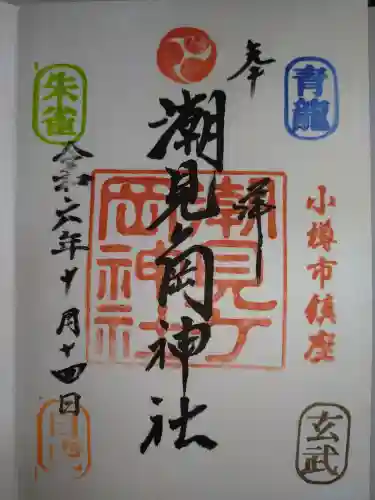 奉拝
青龍
小樽市鎮座
玄武
潮見ヶ岡神社
潮見丁岡神社
朱雀
令和六年十月十四日
白虎